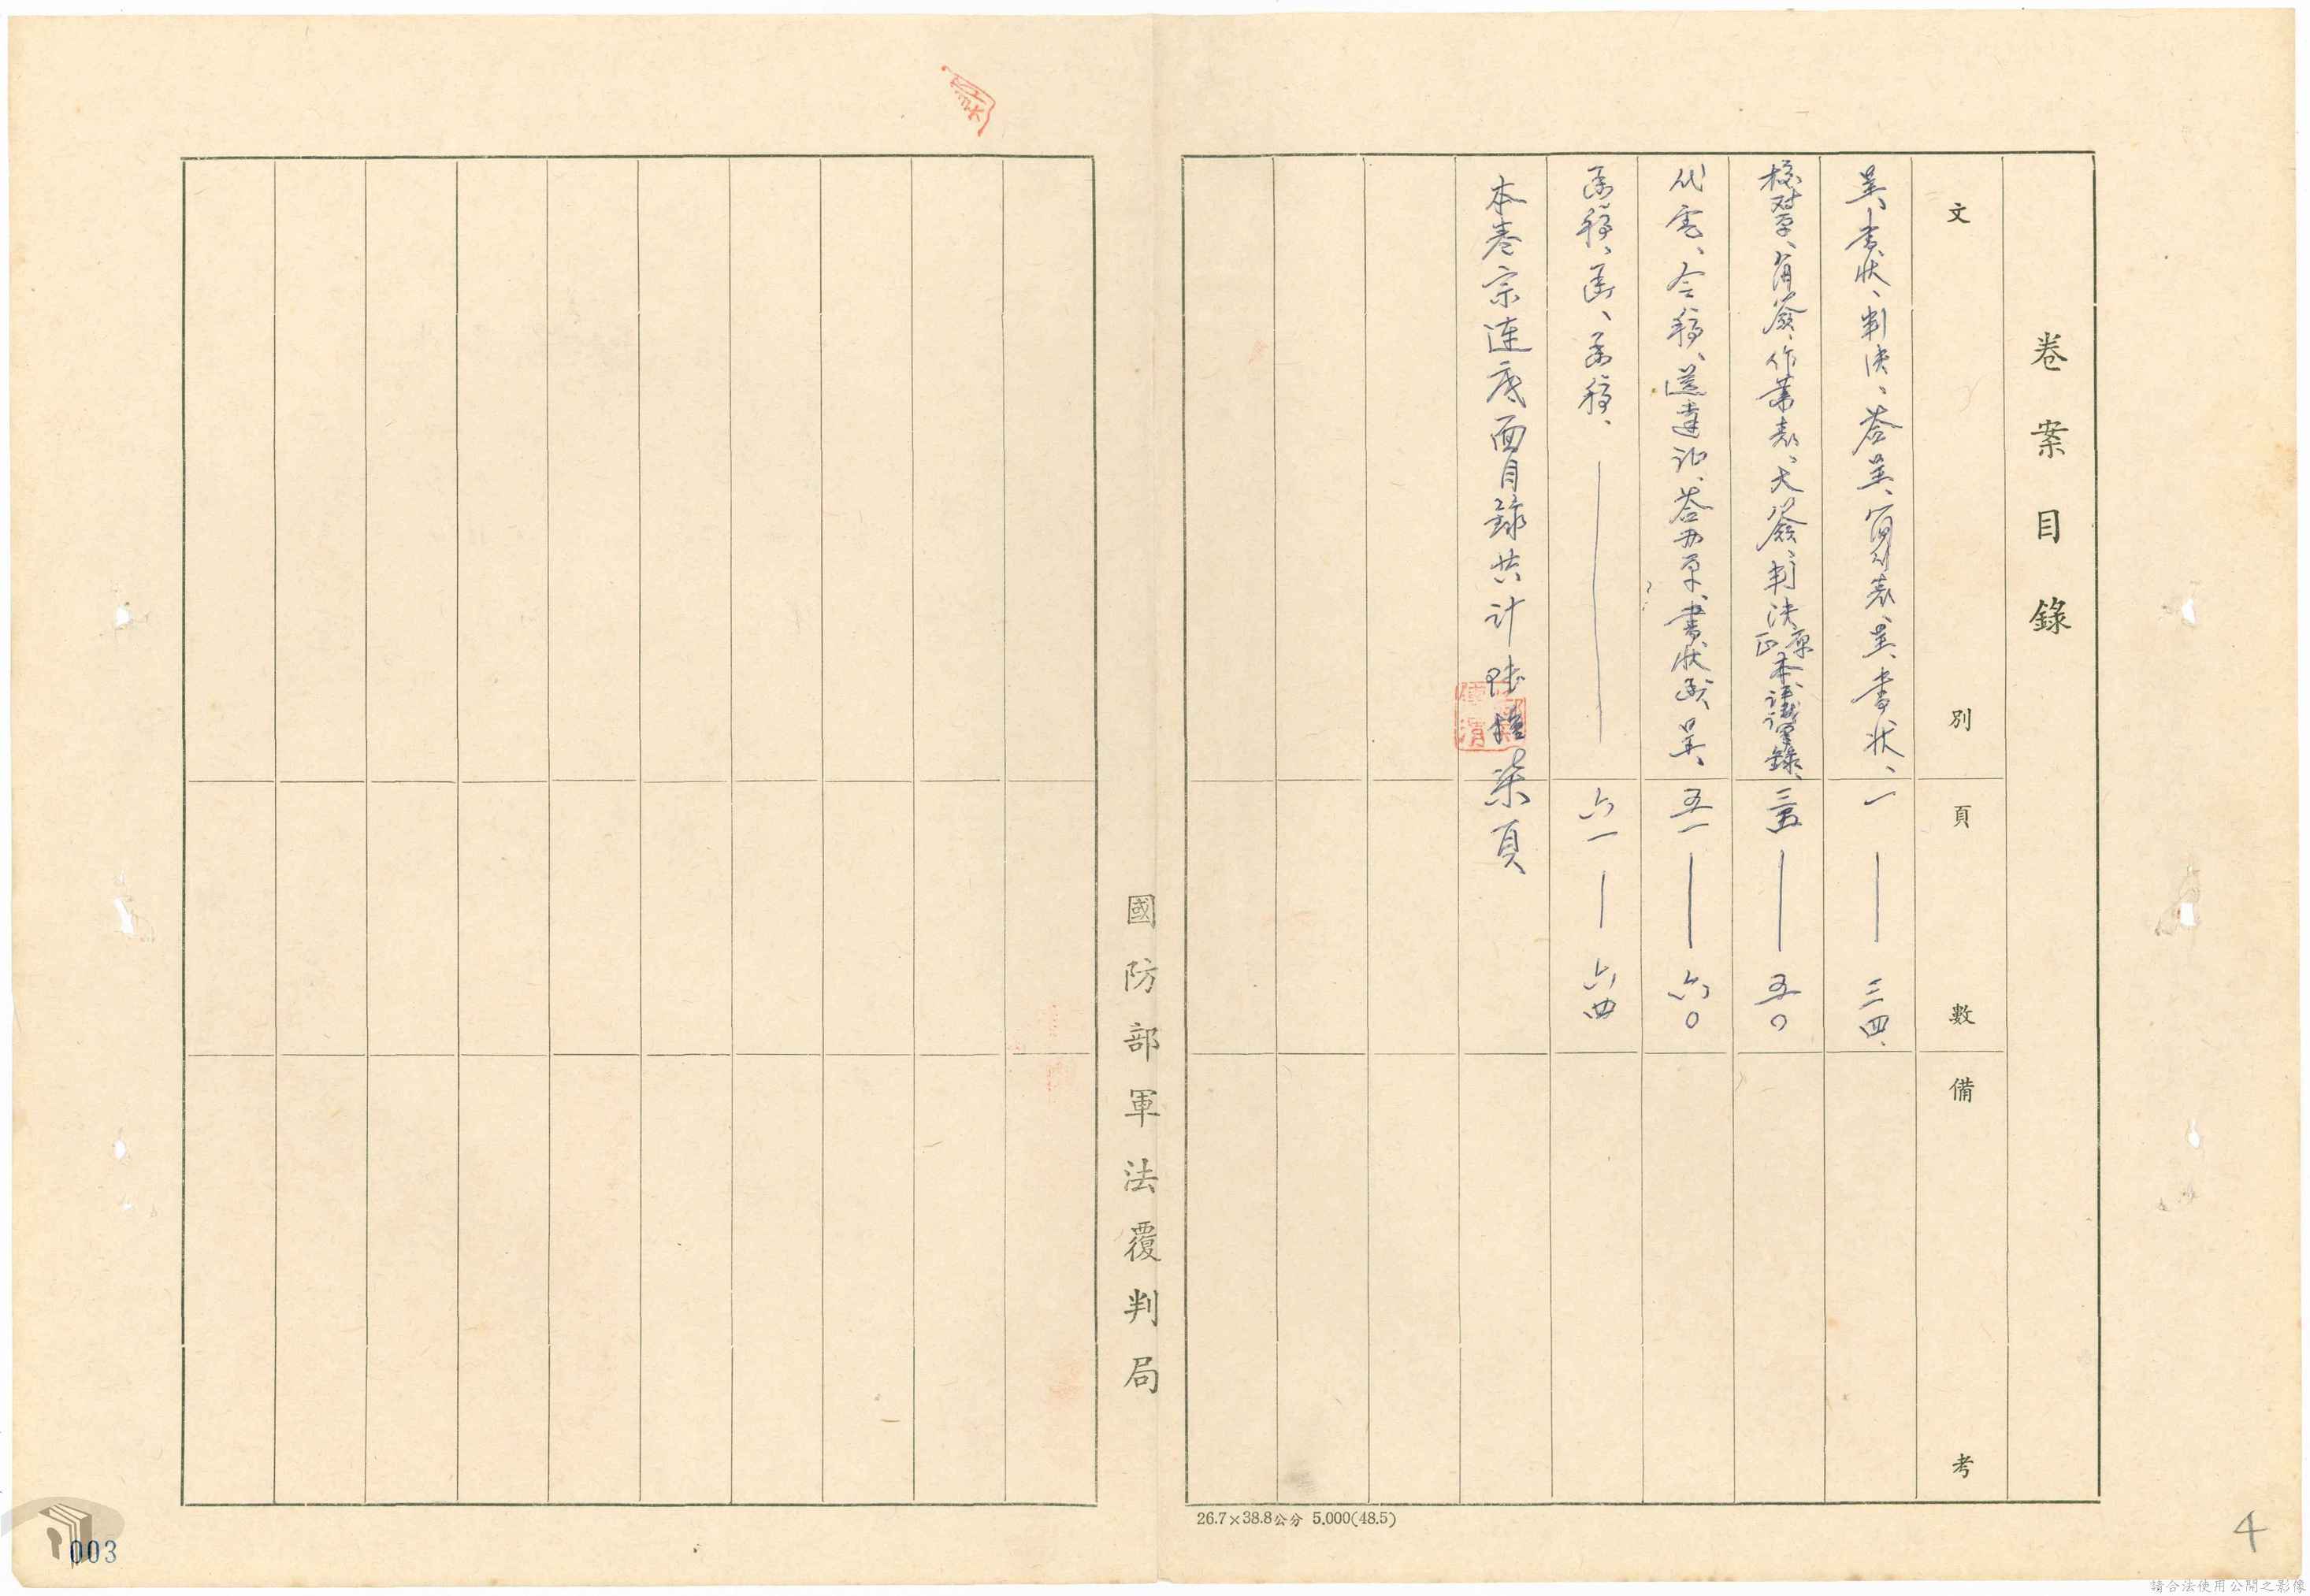 卷案目錄
文別 頁數 備考
呈、書狀、判決、答呈、表、呈、書狀、 一——三四、
核對單、簽、作業表、大簽、判決原正本評議錄、 三五——五〇
代電、令稿、送達証、答辯書、書狀、呈、 五一——六〇
函稿、函、函稿、 六一——六四
本卷宗連底面目錄共計陸拾柒頁
國防部軍法覆判局
26.7×38.8公分 5.000(48.5)
4
003
請合法使用公開之影像